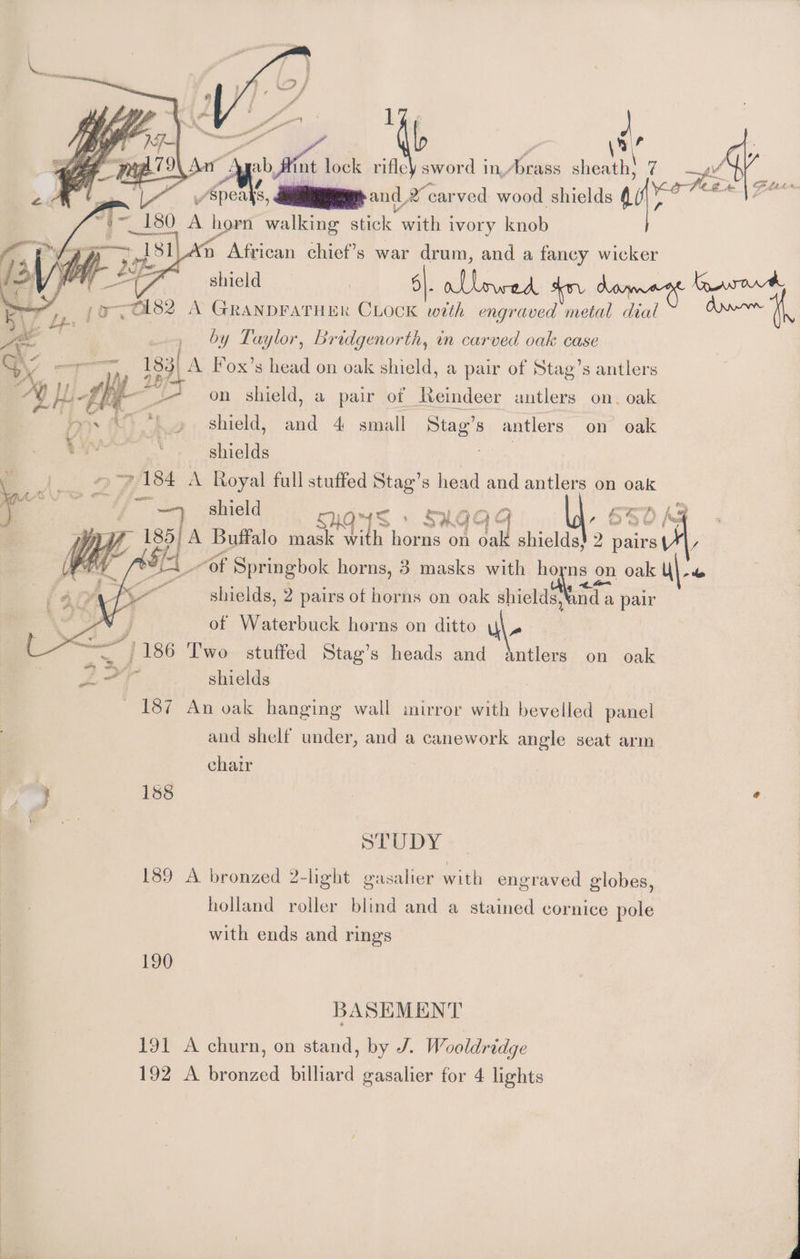 17
179 An Arab flint lock rifle, sword in brass sheath, 7
spears, and 2 carved wood shields
180 A horn walking stick with ivory knob
181 An African chief's war drum, and a fancy wicker
shield
5/- allowed for damage towards drum
182 A GRANDFATHER CLOCK with engraved metal dial
by Taylor, Bridgenorth, in carved oak case
183 A Fox's head on oak shield, a pair of Stag's antlers
on shield, a pair of Reindeer antlers on oak
shield, and 4 small Stag's antlers on oak
shields
184 A Royal full stuffed Stag's head and antlers on oak
shield
185 A Buffalo mask with horns on oak shields, 2 pairs
of Springbok horns, 3 masks with horns on oak
shields, 2 pairs of horns on oak shields, and a pair
of Waterbuck horns on ditto
186 Two stuffed Stag's heads and antlers on oak
shields
187 An oak hanging wall mirror with bevelled panel
and shelf under, and a canework angle seat arm
chair
188
STUDY
189 A bronzed 2-light gasalier with engraved globes,
holland roller blind and a stained cornice pole
with ends and rings
190
BASEMENT
191 A churn, on stand, by J. Wooldridge
192 A bronzed billiard gasalier for 4 lights